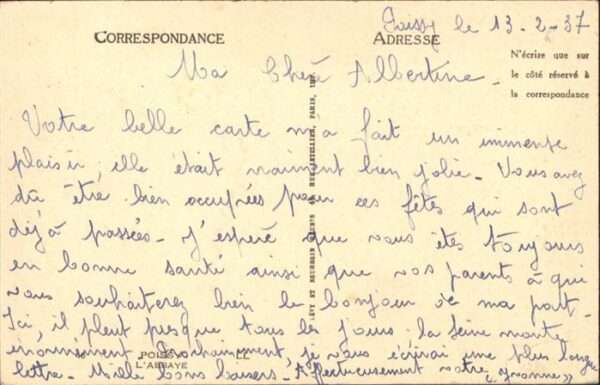 Poissy le 13-2-37
CORRESPONDANCE
ADRESSE
N'écrire que sur
le côté réservé à
la correspondance
Ma Chère Albertine.
Votre belle carte m'a fait un immense
plaisir, elle était vraiment bien jolie. Vous avez
dû être bien occupées pour ces fêtes qui sont
déjà passées. J'espère que vous êtes toujours
en bonne santé ainsi que vos parents à qui
vous souhaiterez bien le bonjour de ma part.
Ici, il pleut presque tous les jours: la Seine monte
énormément. Prochainement, je vous écrirai une plus longue
lettre. Mille bons baisers. Affectueusement votre "Yvonne"
L'ABBAYE
LÉVY ET NEURDEIN RÉUNIS PARIS